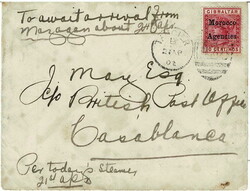 To await arrival from
Mazagan about 24th Apr.
GIBRALTAR
Morocco
Agencies
10 CENTIMOS
J. May Esq
c/o British Post Office
Casablanca
Per today's steamer
21st Apr